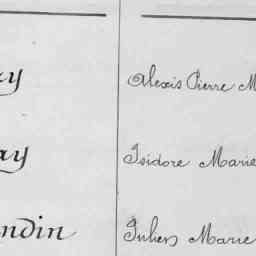 ay Alexis Pierre M
ay Isidore Marie
ndin Julien Marie